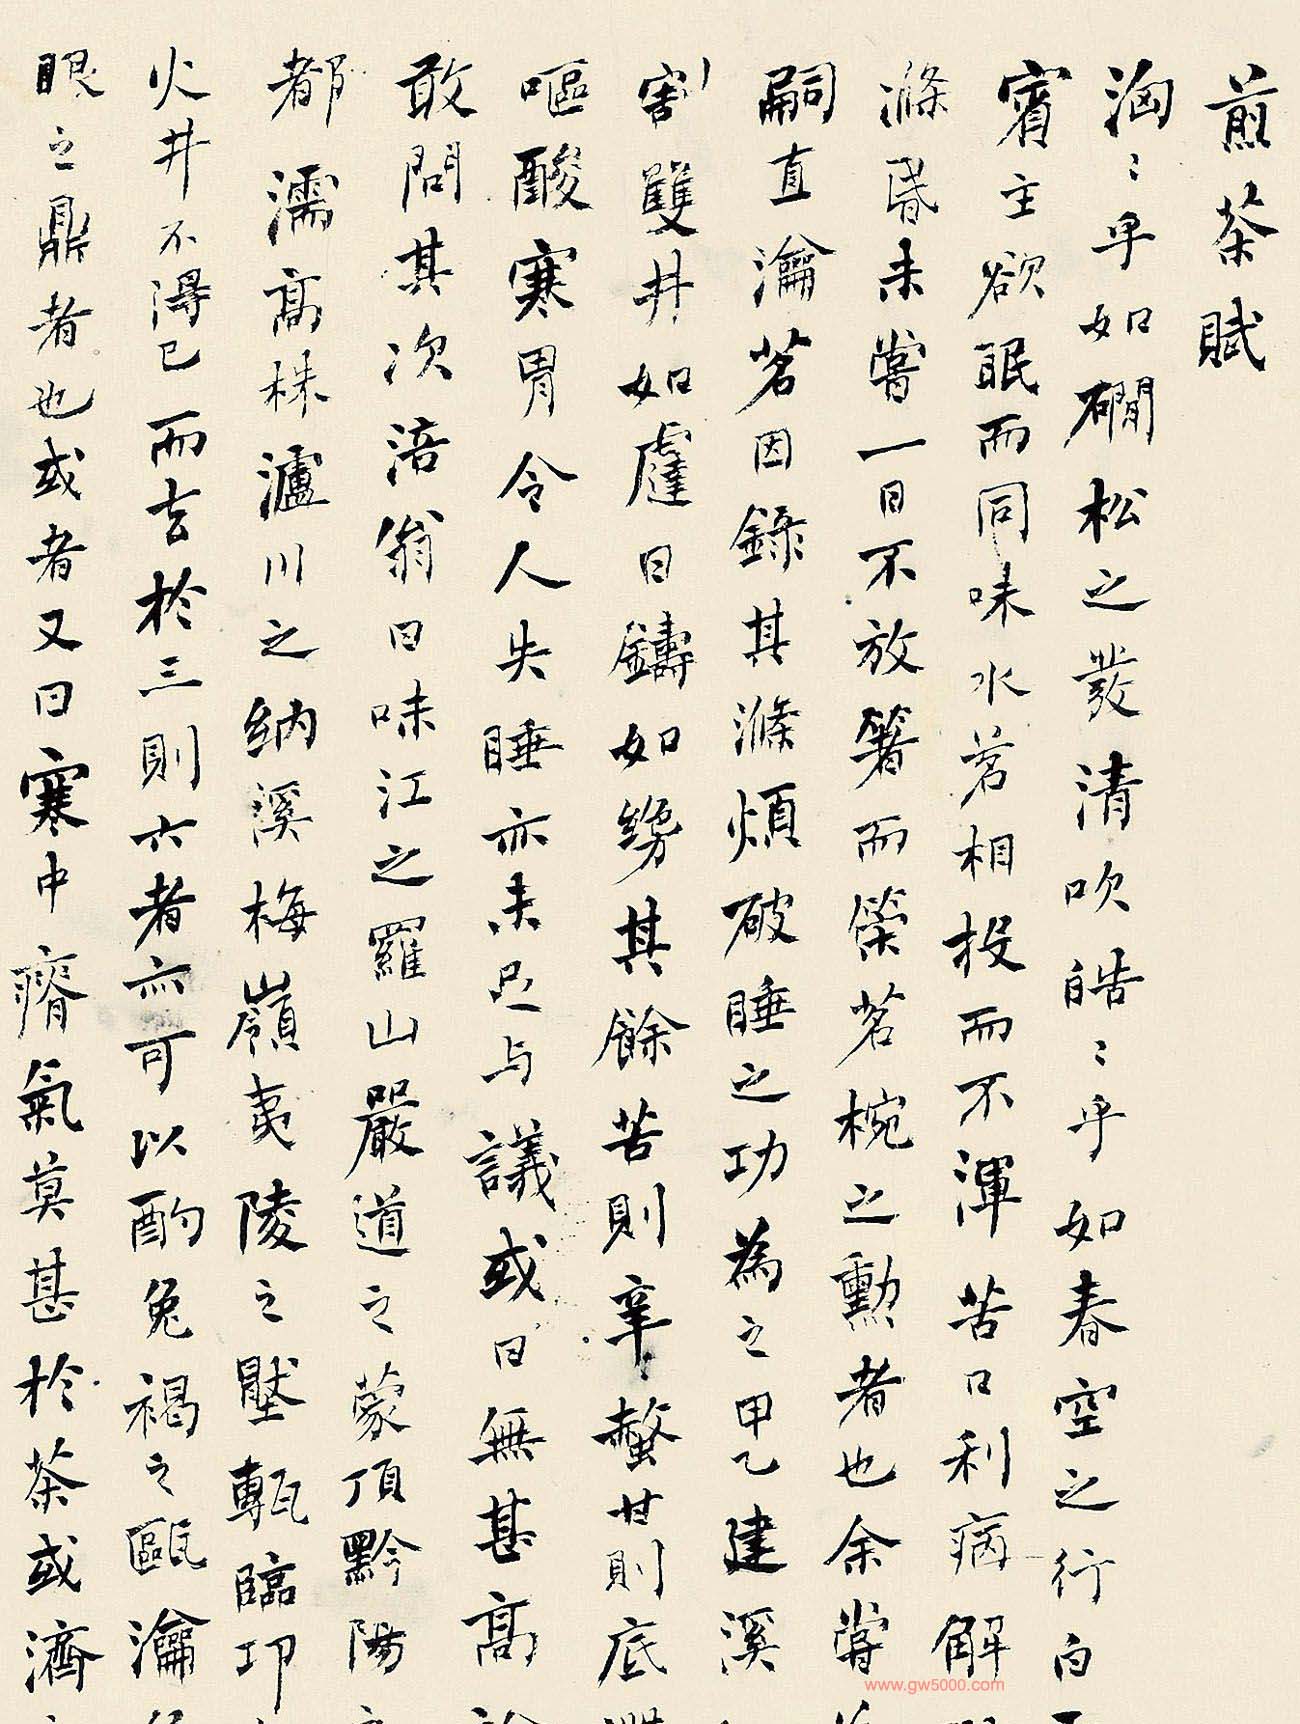 煎茶賦
洶〻乎如磵松之發清吹皓〻乎如春空之行白
賓主欲眠而同味水茗相投而不渾苦口利病解
滌昏未嘗一日不放箸而策茗椀之勳者也余嘗
嗣直瀹茗因錄其滌煩破睡之功為之甲乙建溪
割雙井如䢱日鑄如𢇍其餘苦則辛螫甘則底
嘔酸寒胃令人失睡亦未足与議或曰無甚高
敢問其次涪翁曰味江之羅山嚴道之蒙頂黔陽
都濡高株瀘川之納溪梅嶺夷陵之壓甎臨邛
火井不得已而去於三則六者亦可以酌兔褐之甌瀹
眼之鼎者也或者又曰寒中瘠氣莫甚於茶或濟
www.gw5000.com